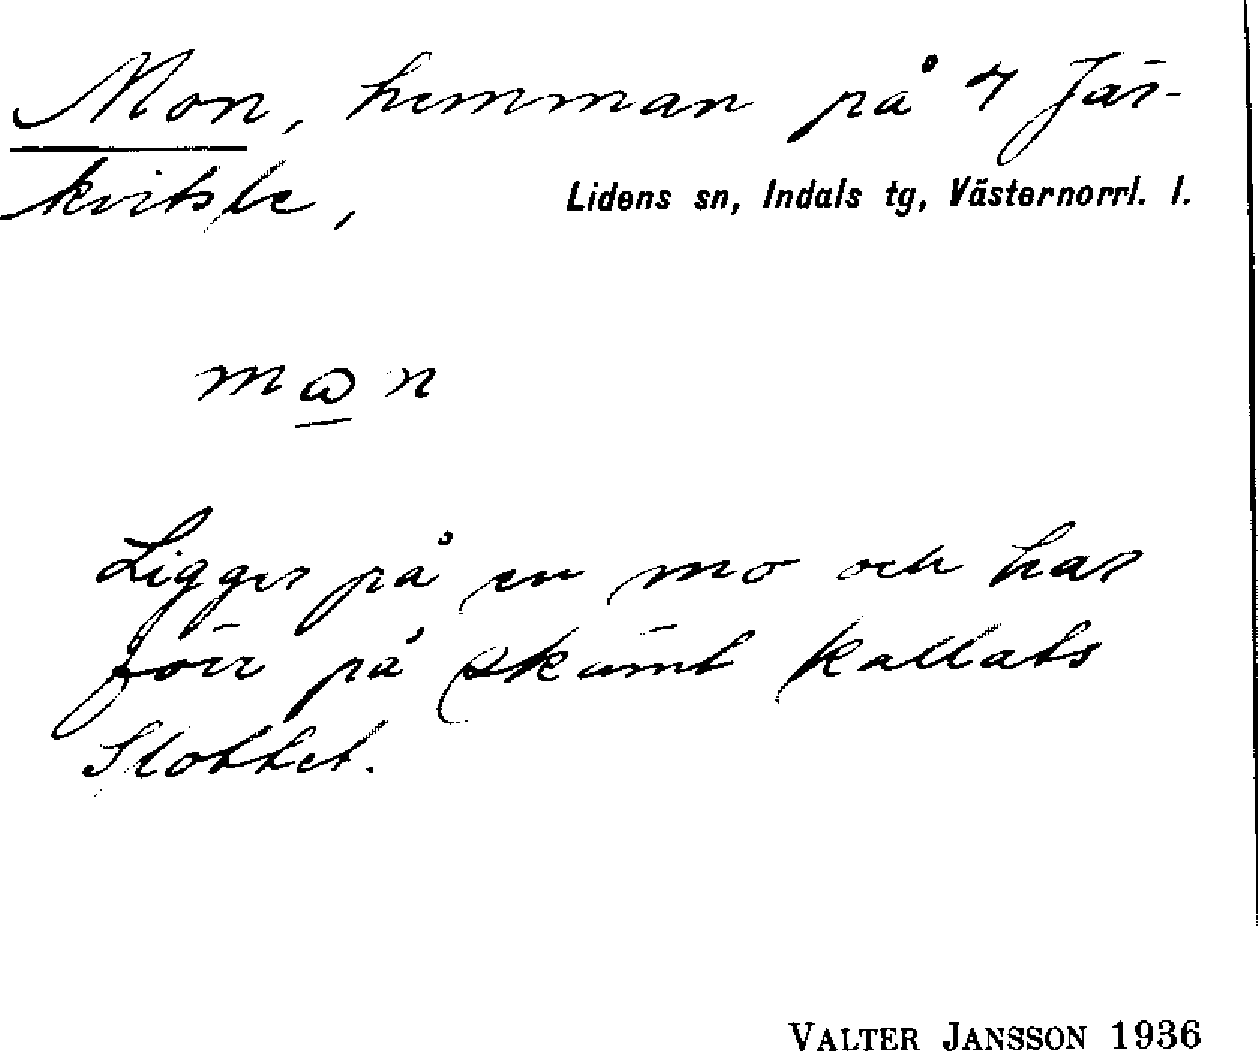 Mon, hemman på 7 Jär-
kvitsle,
Lidens sn, Indals tg, Västernorrl. l.
mɷn
Ligger på en mo och har
förr på skämt kallats
Slottet.
VALTER JANSSON 1936